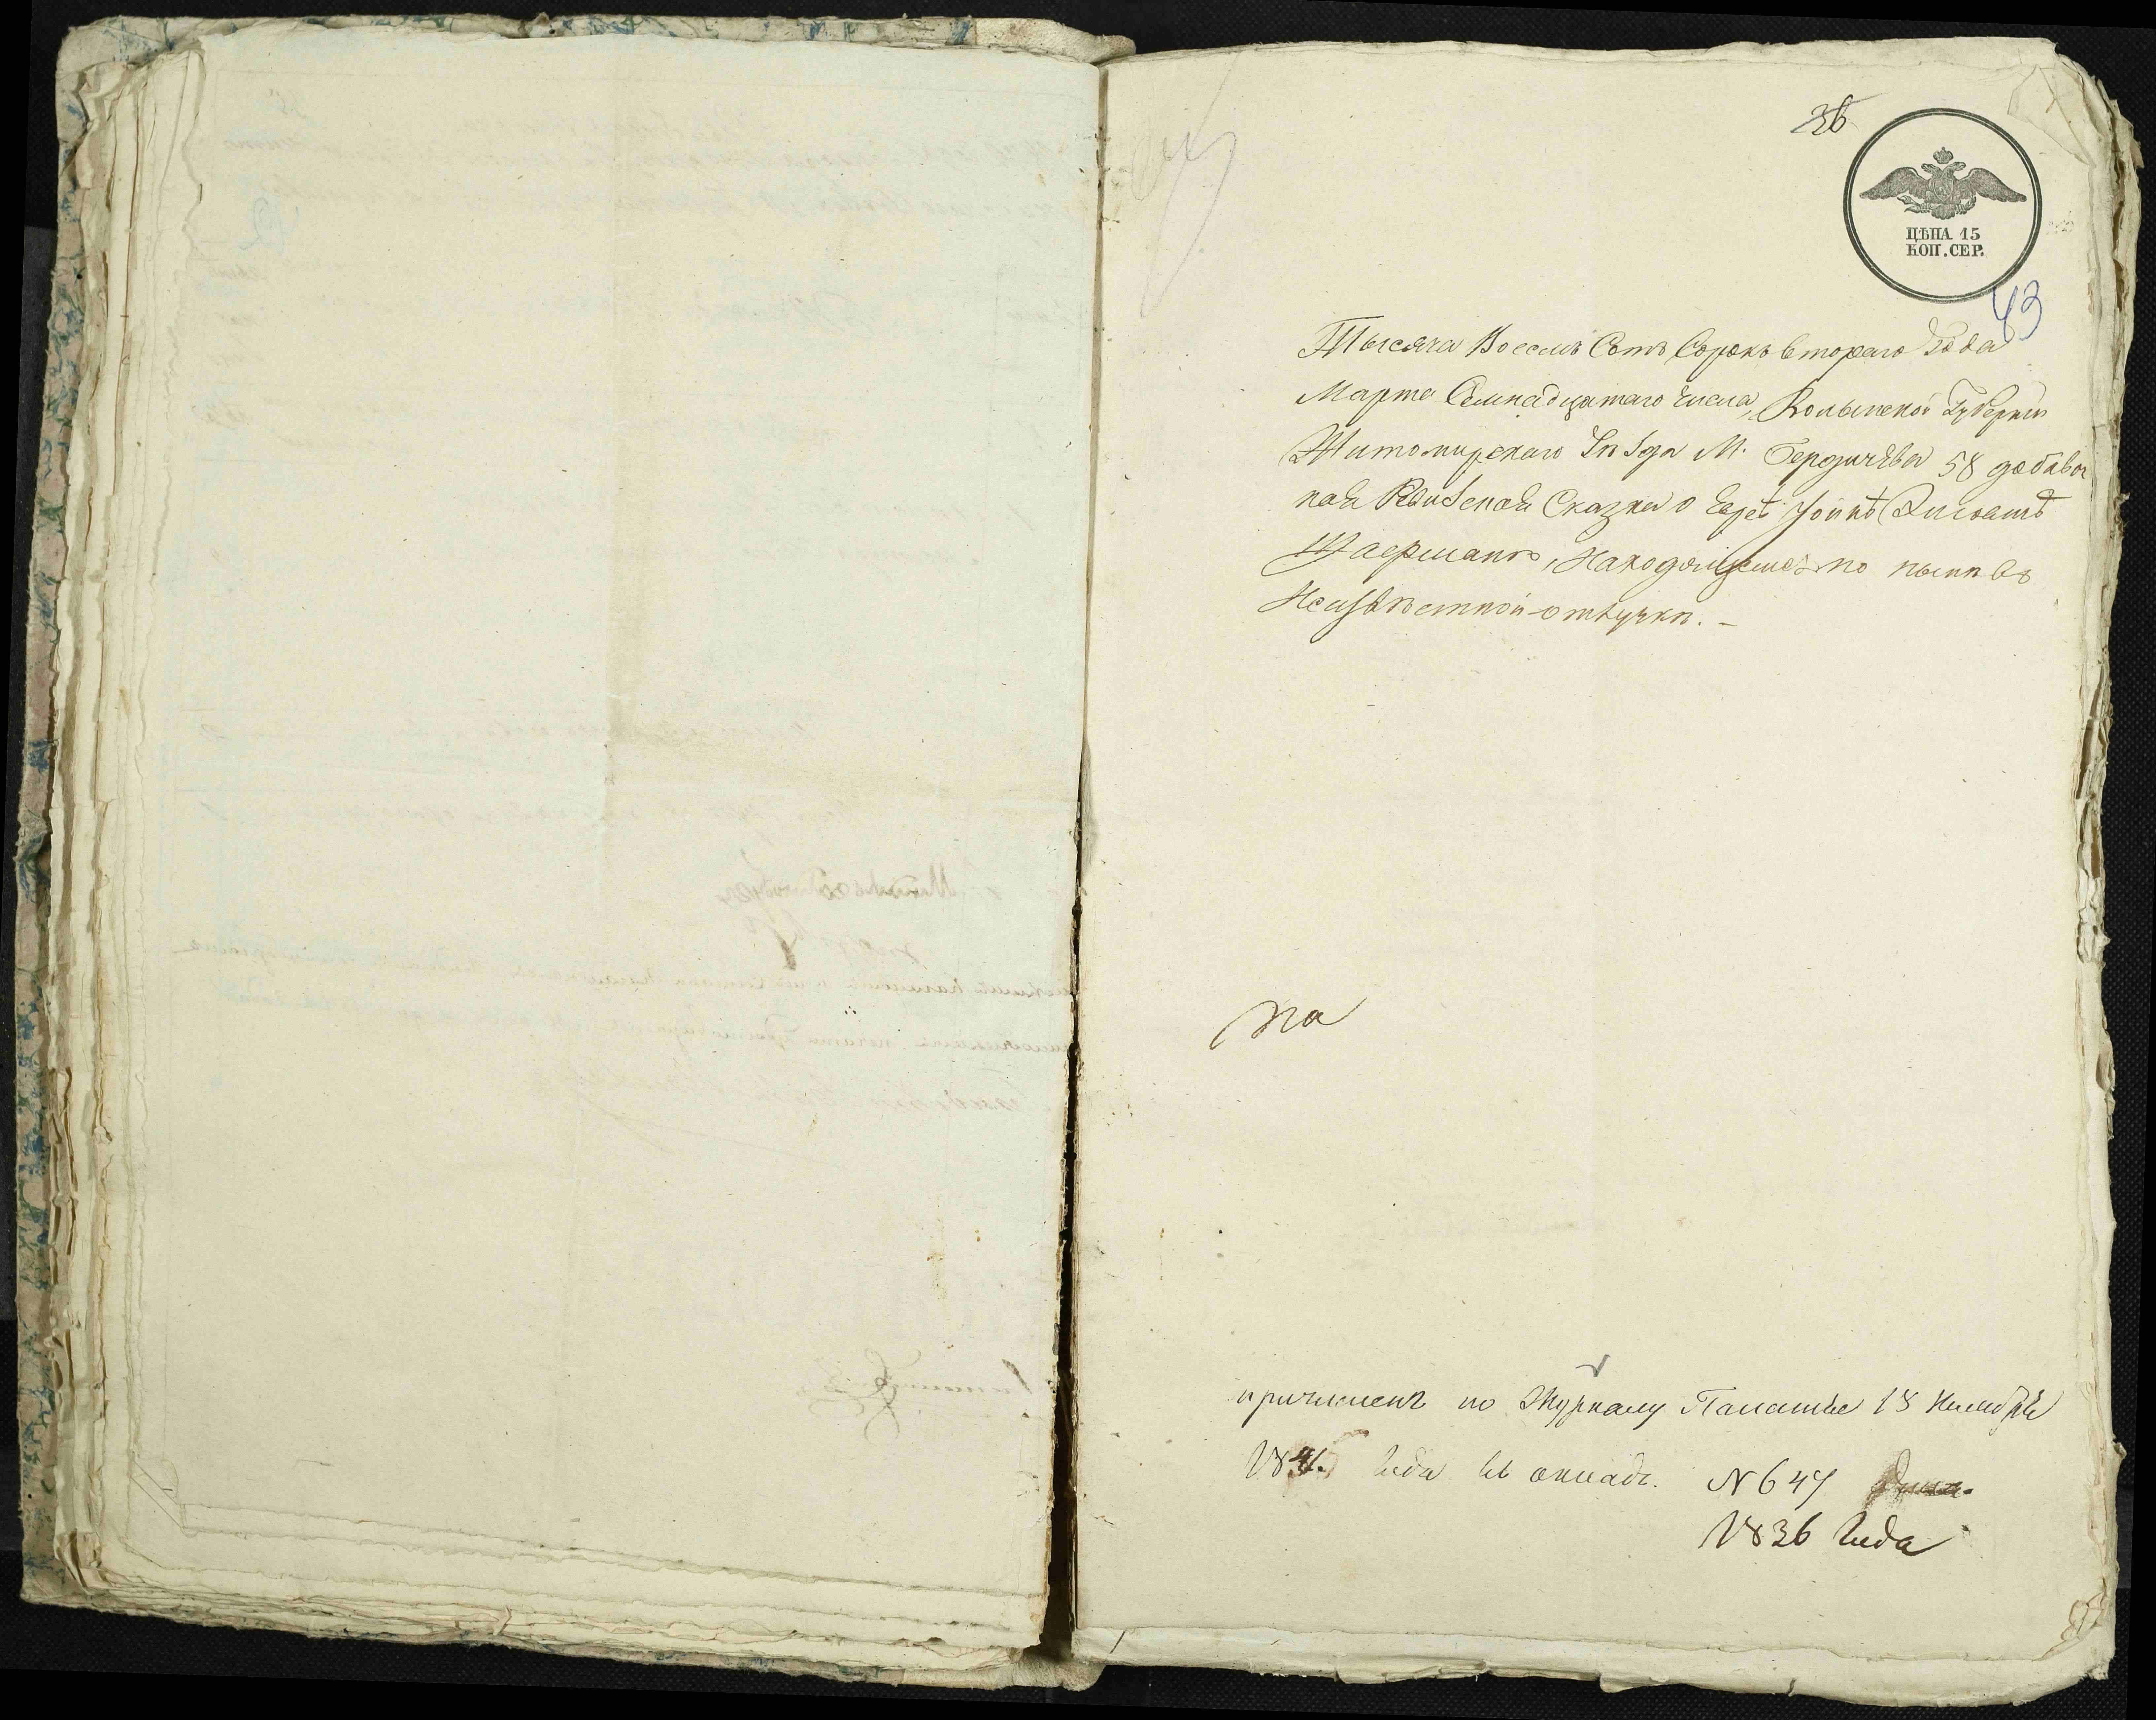 36
ЦѢНА 15
КОП. СЕР.
43
Тысяча Восемь Сотъ Сорокъ втораго года
Марта Семнадцатаго числа, Волынской Губерніи
Житомирскаго уѣзда М. Бердичева 58 добавоч
ная Ревизская Сказка о Евреѣ
Находящемся по нынѣ въ
Неизвѣстной отлучкѣ. -
На
причисленъ по Журналу Палаты 18 Ноября
184 года въ окладъ. N 647
1836 года